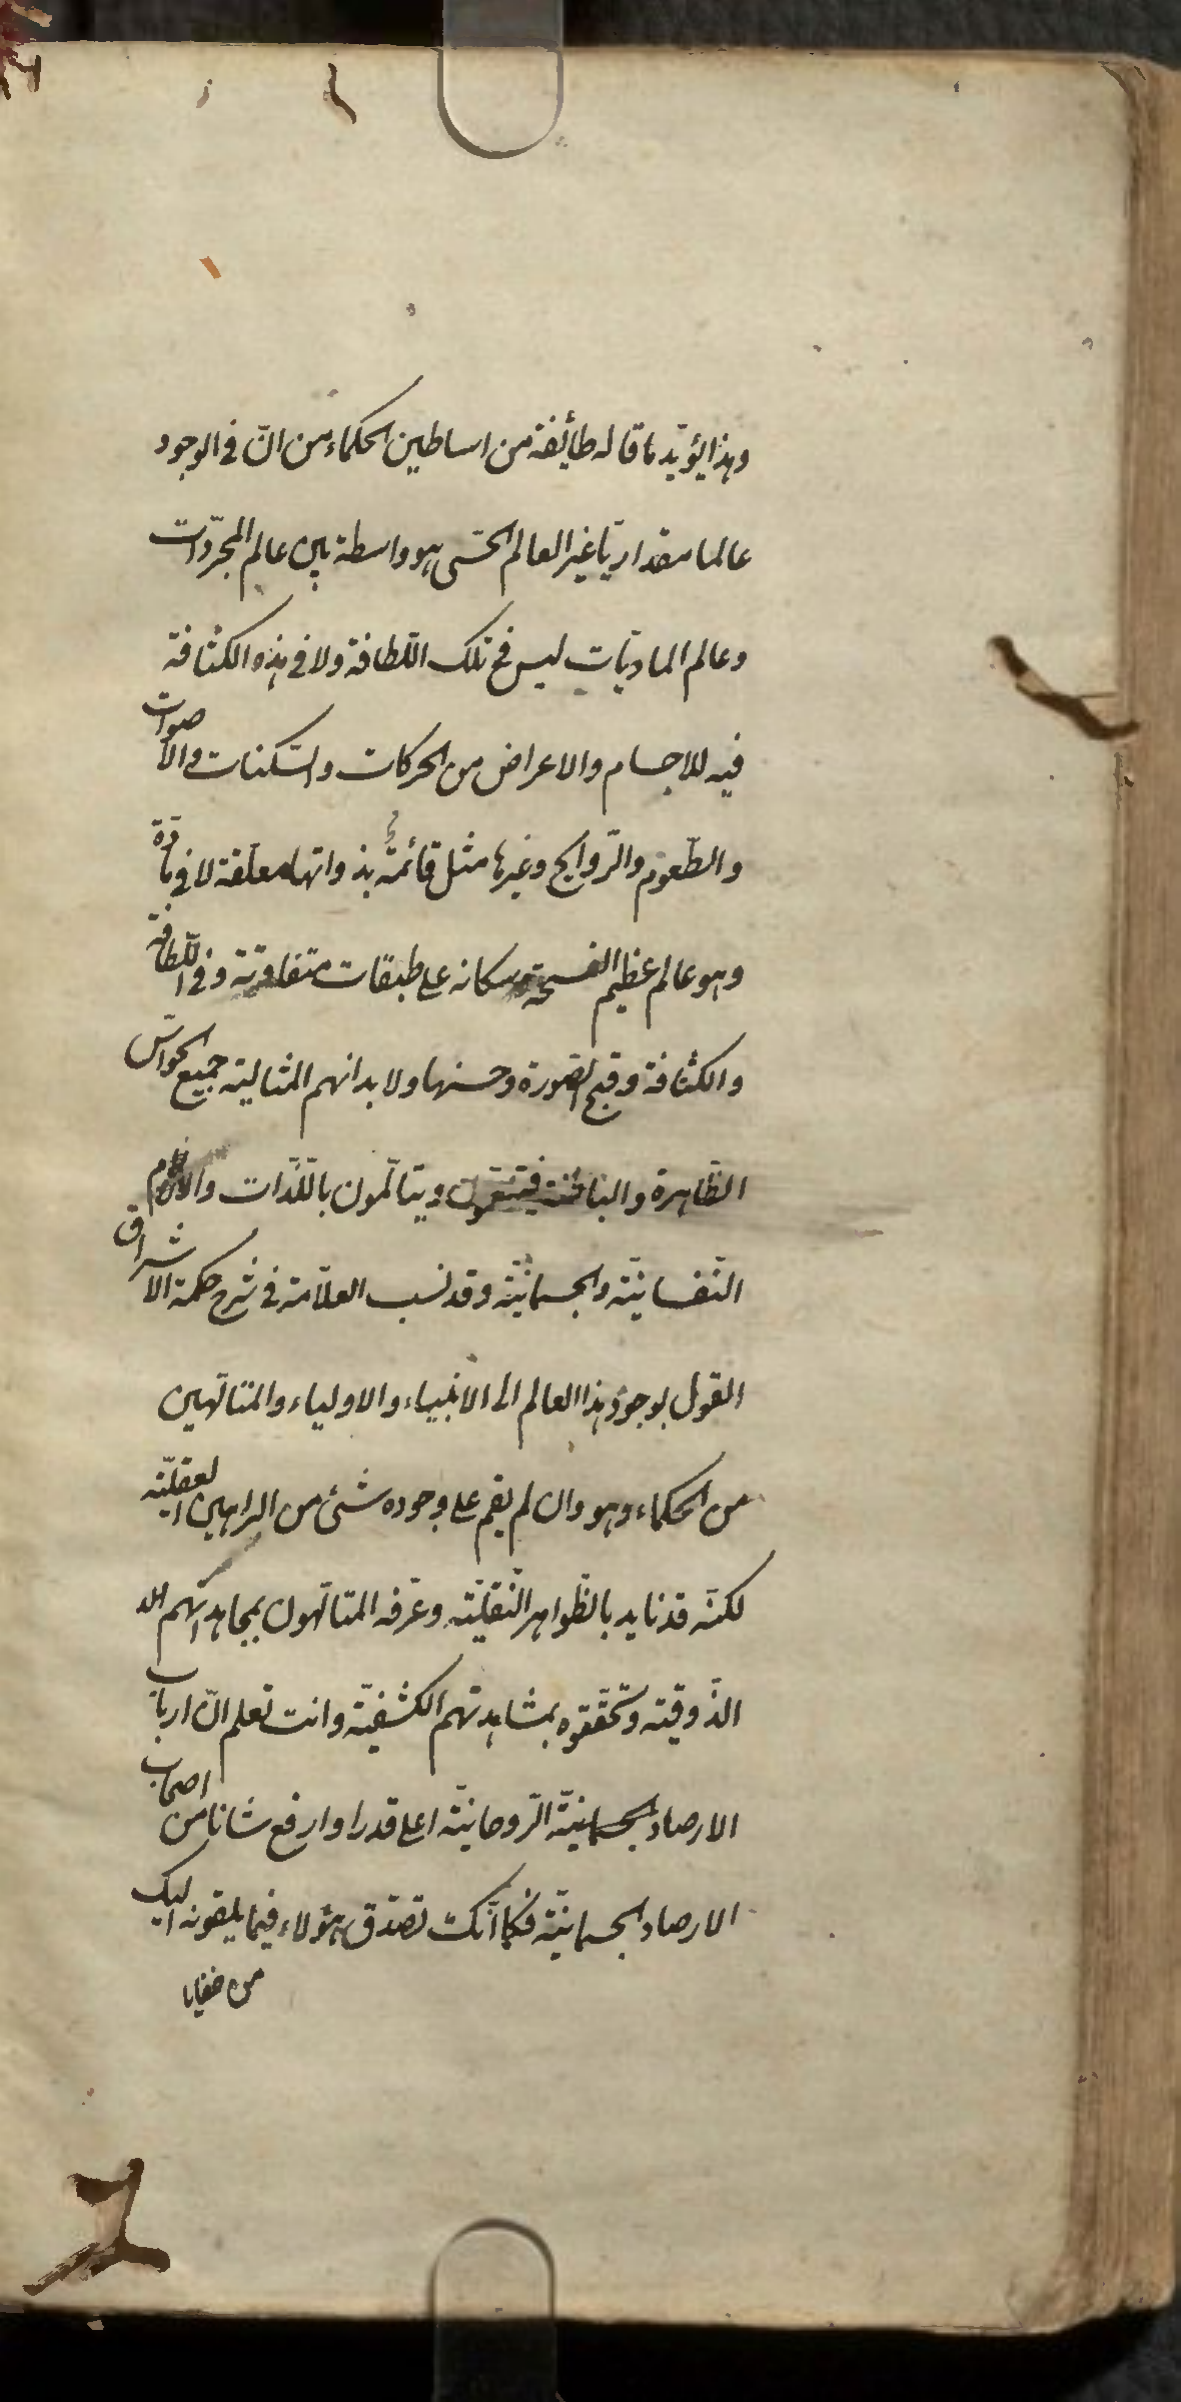 وهذا يؤيّد ما قاله طائفة من اساطين الحكماء من انّ فى الوجود
عالما مقداريّا غير العالم الحسّى هو واسطة بين عالم المجرّدات
وعالم الماديّات ليس فى تلك اللّطافة ولا فى هذه الكثافة
فيه للاجسام والاعراض من الحركات والسّكنات والاصوات
والطّعوم والرّوايح وغيرها مثل قائمة بذواتها معلّقة لا فى مادّة
وهو عالم عظيم الفسحة وسكانه على طبقات متفاوتة وفى اللّطافة
والكثافة وقبح الصّورة وحسنها ولابدانهم المثاليّة جميع الحواسّ
الظّاهرة والباطنة فيتنعّمون ويتالّمون باللّذّات والالام
النّفسانيّة والجسمانيّة وقد نسب العلاّمة فى شرح حكمة الاشراق
القول بوجود هذا العالم الى الانبياء والاولياء والمتالّهين
من الحكماء وهو وان لم يقم على وجوده شئ من البراهين العقليّة
لكنّه قد تايد بالظّواهر النّقليّة وعرّفه المتالّهون بمجاهداتهم
الذّوقيّة وتحقّقوه بمشاهدتهم الكشفيّة وانت تعلم انّ ارباب
الارصاد الرّوحانيّة اعلى قدرا وارفع شانا من اصحاب
الارصاد الجسمانيّة فكما انّك تصدّق هؤلاء فيما يلقونه اليك
من خفايا